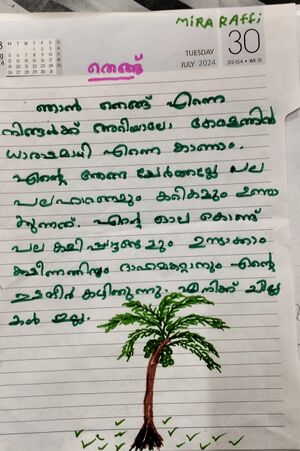 MiRA RAffi
30
TUESDAY
JULY 2024
212-154 • WK 31
തെങ്ങ്
ഞാൻ തെങ്ങ് എന്നെ
നിങ്ങൾക്ക് അറിയാലോ കേരളത്തിൽ
ധാരാളമായി എന്നെ കാണാം.
എന്റെ തേങ്ങ ചേർത്തല്ലേ പല
പലഹാരങ്ങളും കറികളും ഉണ്ടാ
ക്കുന്നത്. എന്റെ ഓല കൊണ്ട്
പല കളിപ്പാട്ടങ്ങളും ഉണ്ടാക്കാം
ക്ഷീണത്തിനും ദാഹമകറ്റാനും എന്റെ
ഇളനീർ കുടിക്കുന്നു. എനിക്ക് ചില്ല
കൾ ഇല്ല.